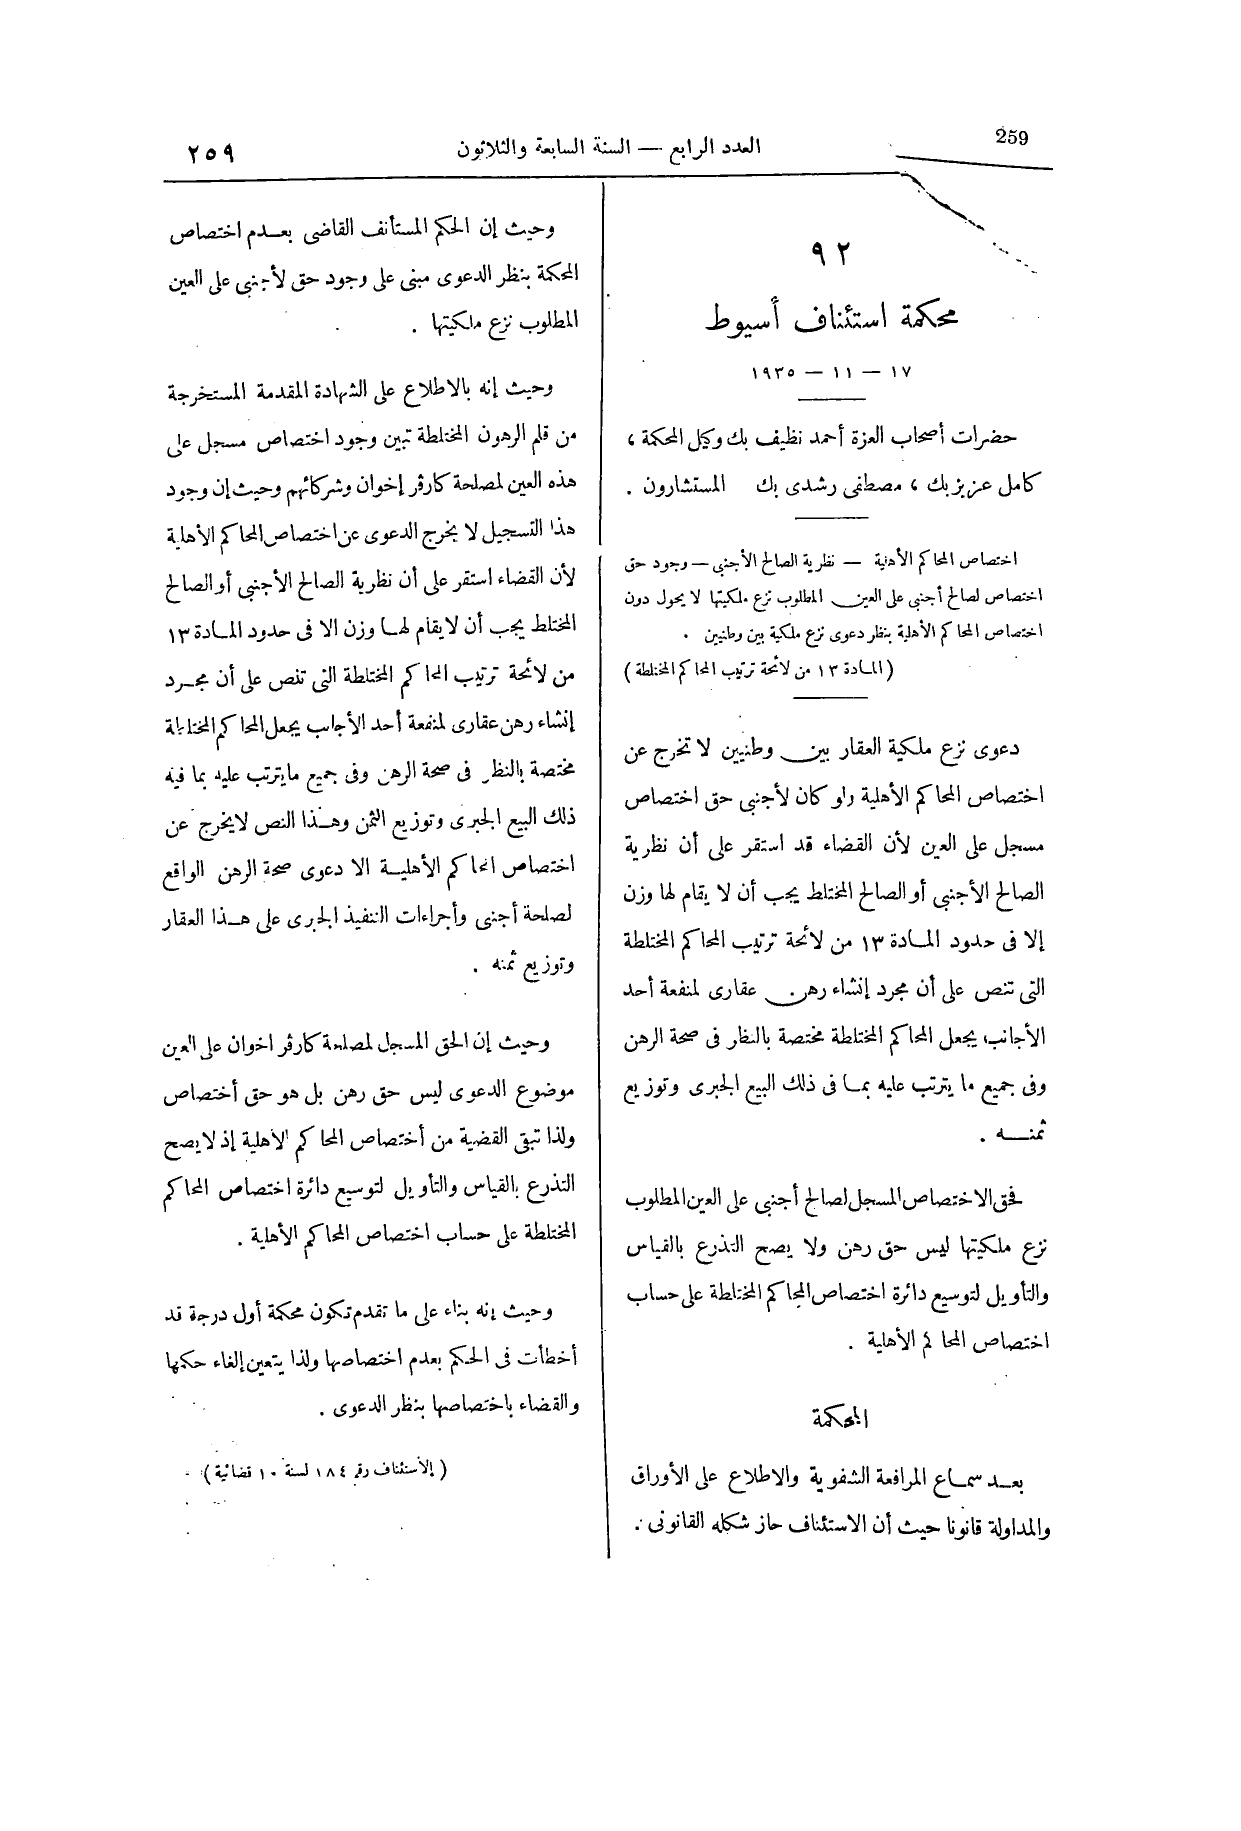 259
العدد الرابع — السنة السابعة والثلاثون
٢٥٩
٩٢
محكمة استئناف أسيوط
١٧ — ١١ — ١٩٣٥
حضرات أصحاب العزة أحمد نظيف بك وكيل المحكمة ،
كامل عزيز بك ، مصطفى رشدى بك المستشارون .
اختصاص المحاكم الأهلية — نظرية الصالح الأجنبى — وجود حق
اختصاص لصالح أجنبى على العين المطلوب نزع ملكيتها لا يحول دون
اختصاص المحاكم الأهلية بنظر دعوى نزع ملكية بين وطنيين .
( المادة ١٣ من لائحة ترتيب المحاكم المختلطة )
دعوى نزع ملكية العقار بين وطنيين لا تخرج عن
اختصاص المحاكم الأهلية ولو كان لأجنبى حق اختصاص
مسجل على العين لأن القضاء قد استقر على أن نظرية
الصالح الأجنبى أو الصالح المختلط يجب أن لا يقام لها وزن
إلا فى حدود المادة ١٣ من لائحة ترتيب المحاكم المختلطة
التى تنص على أن مجرد إنشاء رهن عقارى لمنفعة أحد
الأجانب يجعل المحاكم المختلطة مختصة بالنظر فى صحة الرهن
وفى جميع ما يترتب عليه بما فى ذلك البيع الجبرى وتوزيع
ثمنه .
فحق الاختصاص المسجل لصالح أجنبى على العين المطلوب
نزع ملكيتها ليس حق رهن ولا يصح التذرع بالقياس
والتأويل لتوسيع دائرة اختصاص المحاكم المختلطة على حساب
اختصاص المحاكم الأهلية .
المحكمة
بعد سماع المرافعة الشفوية والاطلاع على الأوراق
والمداولة قانونا حيث أن الاستئناف حاز شكله القانونى .
وحيث إن الحكم المستأنف القاضى بعدم اختصاص
المحكمة بنظر الدعوى مبنى على وجود حق لأجنبى على العين
المطلوب نزع ملكيتها .
وحيث إنه بالاطلاع على الشهادة المقدمة المستخرجة
من قلم الرهون المختلطة تبين وجود اختصاص مسجل على
هذه العين لمصلحة كارڤر إخوان وشركائهم وحيث إن وجود
هذا التسجيل لا يخرج الدعوى عن اختصاص المحاكم الأهلية
لأن القضاء استقر على أن نظرية الصالح الأجنبى أو الصالح
المختلط يجب أن لا يقام لها وزن الا فى حدود المادة ١٣
من لائحة ترتيب المحاكم المختلطة التى تنص على أن مجرد
إنشاء رهن عقارى لمنفعة أحد الأجانب يجعل المحاكم المختلطة
مختصة بالنظر فى صحة الرهن وفى جميع ما يترتب عليه بما فيه
ذلك البيع الجبرى وتوزيع الثمن وهذا النص لا يخرج عن
اختصاص المحاكم الأهلية الا دعوى صحة الرهن الواقع
لصلحة أجنبى وأجراءات التنفيذ الجبرى على هذا العقار
وتوزيع ثمنه .
وحيث إن الحق المسجل لمصلحة كارڤر اخوان على العين
موضوع الدعوى ليس حق رهن بل هو حق أختصاص
ولذا تبقى القضية من أختصاص المحاكم الأهلية إذ لا يصح
التذرع بالقياس والتأويل لتوسيع دائرة اختصاص المحاكم
المختلطة على حساب اختصاص المحاكم الأهلية .
وحيث إنه بناء على ما تقدم تكون محكمة أول درجة قد
أخطأت فى الحكم بعدم اختصاصها ولذا يتعين إلغاء حكمها
والقضاء باختصاصها بنظر الدعوى .
( الاستئناف رقم ١٨٤ لسنة ١٠ قضائية )